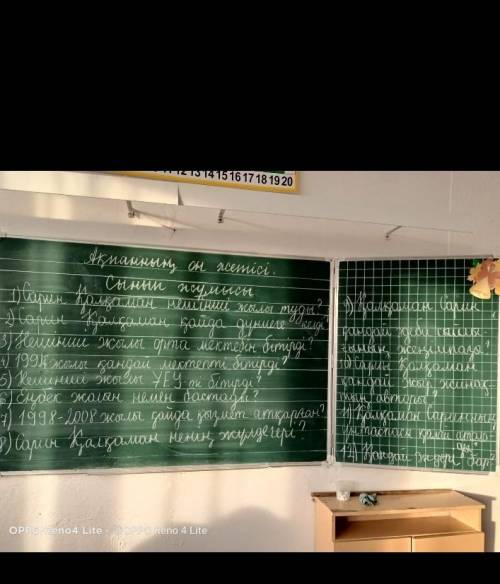 12 13 14 15 16 17 18 19 20
Ақпанның он жетісі.
Сынып жұмысы
1) Сарин Қалқаман нешінші жылы туды?
2) Сарин Қалқаман қайда дүниеге келді?
3) Нешінші жылы орта мектепті бітірді?
4) жылы қандай мектепті бітірді?
5) Нешінші жылы бітірді?
6) Еңбек жолын немен бастады?
7) 1998-2008 жылы қайда қызмет атқарған?
8) Сарин Қалқаман ненің жүлдегері?
9) Қалқаман Сарин
қандай
жеңімпазы?
10) Сарин Қалқаман
қандай жыр жинақ-
тың авторы?
11) Қалқаман Сариннің
қалай атала-
ды?
12) Қандай бар?
OPPO Reno4 Lite
OPPO Reno 4 Lite